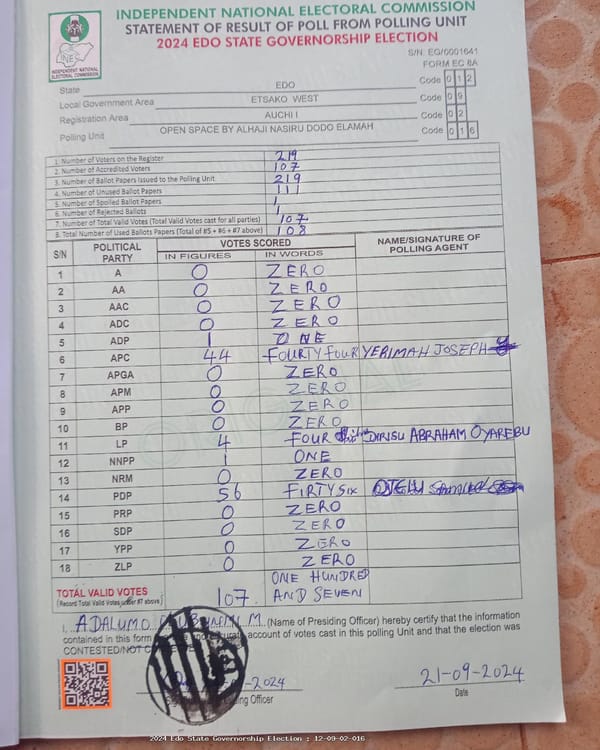 INDEPENDENT NATIONAL ELECTORAL COMMISSION
STATEMENT OF RESULT OF POLL FROM POLLING UNIT
2024 EDO STATE GOVERNORSHIP ELECTION
INEC
INDEPENDENT NATIONAL ELECTORAL COMMISSION
S/N: EG/0001641
FORM EC 8A
State EDO Code 0 1 2
Local Government Area ETSAKO WEST Code 0 9
Registration Area AUCHI I Code 0 2
Polling Unit OPEN SPACE BY ALHAJI NASIRU DODO ELAMAH Code 0 1 6
1. Number of Voters on the Register 219
2. Number of Accredited Voters 107
3. Number of Ballot Papers Issued to the Polling Unit 219
4. Number of Unused Ballot Papers 111
5. Number of Spoiled Ballot Papers 1
6. Number of Rejected Ballots 1
7. Number of Total Valid Votes (Total Valid Votes cast for all parties) 107
8. Total Number of Used Ballots Papers (Total of #5 + #6 + #7 above) 108
S/N POLITICAL PARTY VOTES SCORED NAME/SIGNATURE OF POLLING AGENT
IN FIGURES IN WORDS
1 A 0 ZERO
2 AA 0 ZERO
3 AAC 0 ZERO
4 ADC 0 ZERO
5 ADP 1 ONE
6 APC 44 FOURTY FOUR YERIMAH JOSEPH
7 APGA 0 ZERO
8 APM 0 ZERO
9 APP 0 ZERO
10 BP 0 ZERO
11 LP 4 FOUR IDIRISU ABRAHAM OYAREBU
12 NNPP 1 ONE
13 NRM 0 ZERO
14 PDP 56 FIRTY SIX
15 PRP 0 ZERO
16 SDP 0 ZERO
17 YPP 0 ZERO
18 ZLP 0 ZERO
TOTAL VALID VOTES 107 ONE HUNDRED AND SEVEN
(Record Total Valid Votes under #7 above)
I, ADALUMO M. (Name of Presiding Officer) hereby certify that the information
contained in this form account of votes cast in this polling Unit and that the election was
CONTESTED/NOT
-09-2024 21-09-2024
Officer Date
2024 Edo State Governorship Election : 12-09-02-016